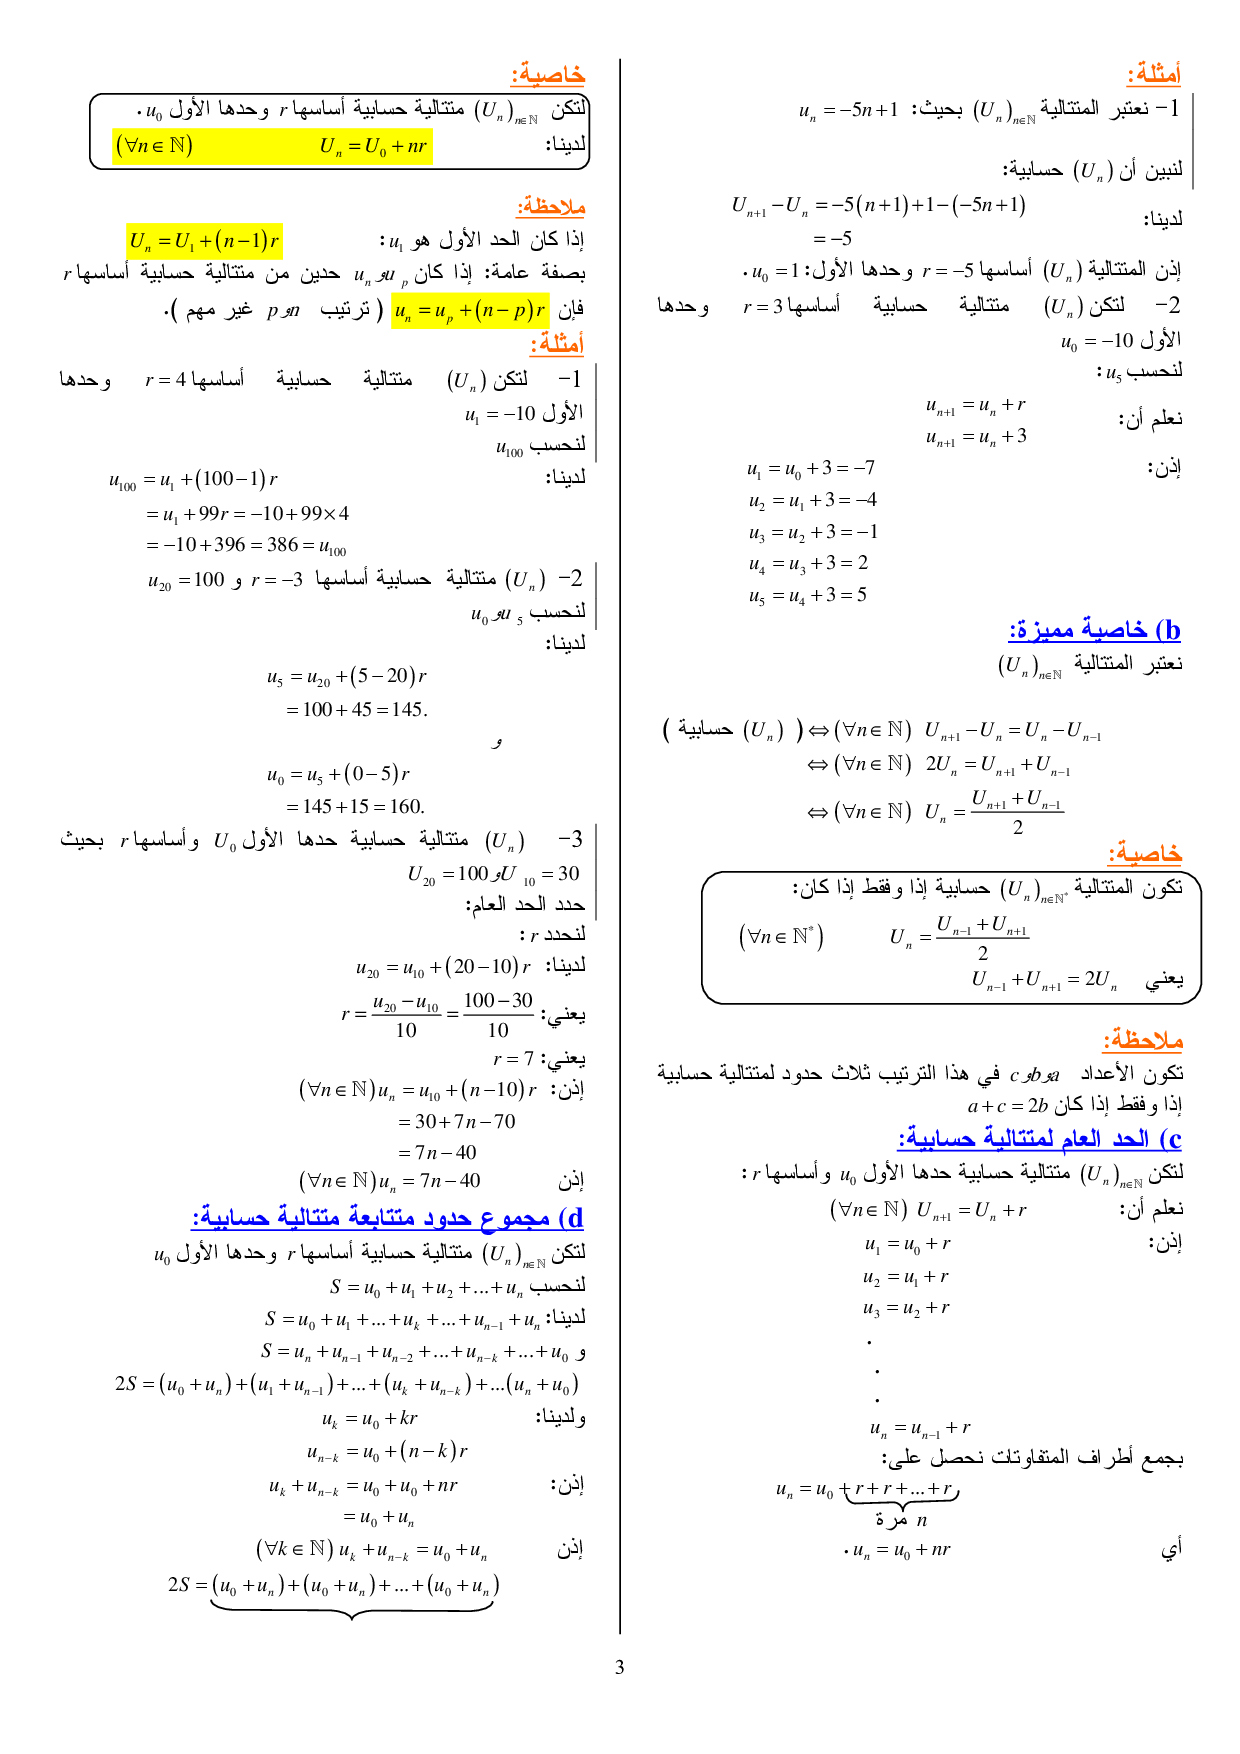 أمثلة:
1- نعتبر المتتالية (U_n)_{n∈ℕ} بحيث: u_n = −5n + 1
لنبين أن (U_n) حسابية:
لدينا: U_{n+1} − U_n = −5(n+1) + 1 − (−5n+1)
= −5
إذن المتتالية (U_n) أساسها r = −5 وحدها الأول: u_0 = 1.
2- لتكن (U_n) متتالية حسابية أساسها r = 3 وحدها
الأول u_0 = −10
لنحسب u_5:
نعلم أن: u_{n+1} = u_n + r
u_{n+1} = u_n + 3
إذن: u_1 = u_0 + 3 = −7
u_2 = u_1 + 3 = −4
u_3 = u_2 + 3 = −1
u_4 = u_3 + 3 = 2
u_5 = u_4 + 3 = 5
b) خاصية مميزة:
نعتبر المتتالية (U_n)_{n∈ℕ}
( (U_n) حسابية ) ⇔ (∀n∈ℕ) U_{n+1} − U_n = U_n − U_{n−1}
⇔ (∀n∈ℕ) 2U_n = U_{n+1} + U_{n−1}
⇔ (∀n∈ℕ) U_n = (U_{n+1} + U_{n−1})/2
خاصية:
تكون المتتالية (U_n)_{n∈ℕ*} حسابية إذا وفقط إذا كان:
(∀n∈ℕ*) U_n = (U_{n−1} + U_{n+1})/2
يعني U_{n−1} + U_{n+1} = 2U_n
ملاحظة:
تكون الأعداد a و b و c في هذا الترتيب ثلاث حدود لمتتالية حسابية
إذا وفقط إذا كان a + c = 2b
c) الحد العام لمتتالية حسابية:
لتكن (U_n)_{n∈ℕ} متتالية حسابية حدها الأول u_0 وأساسها r:
نعلم أن: (∀n∈ℕ) U_{n+1} = U_n + r
إذن: u_1 = u_0 + r
u_2 = u_1 + r
u_3 = u_2 + r
.
.
.
u_n = u_{n−1} + r
بجمع أطراف المتفاوتات نحصل على:
u_n = u_0 + r + r + ... + r
n مرة
أي u_n = u_0 + nr.
خاصية:
لتكن (U_n)_{n∈ℕ} متتالية حسابية أساسها r وحدها الأول u_0.
لدينا: U_n = U_0 + nr (∀n∈ℕ)
ملاحظة:
إذا كان الحد الأول هو u_1: U_n = U_1 + (n−1)r
بصفة عامة: إذا كان u_p و u_n حدين من متتالية حسابية أساسها r
فإن u_n = u_p + (n−p)r ( ترتيب n و p غير مهم ).
أمثلة:
1- لتكن (U_n) متتالية حسابية أساسها r = 4 وحدها
الأول u_1 = −10
لنحسب u_100
لدينا: u_100 = u_1 + (100−1)r
= u_1 + 99r = −10 + 99×4
= −10 + 396 = 386 = u_100
2- (U_n) متتالية حسابية أساسها r = −3 و u_20 = 100
لنحسب u_5 و u_0
لدينا:
u_5 = u_20 + (5−20)r
= 100 + 45 = 145.
و
u_0 = u_5 + (0−5)r
= 145 + 15 = 160.
3- (U_n) متتالية حسابية حدها الأول U_0 وأساسها r بحيث
U_10 = 30 و U_20 = 100
حدد الحد العام:
لنحدد r:
لدينا: u_20 = u_10 + (20−10)r
يعني: r = (u_20 − u_10)/10 = (100−30)/10
يعني: r = 7
إذن: (∀n∈ℕ) u_n = u_10 + (n−10)r
= 30 + 7n − 70
= 7n − 40
إذن (∀n∈ℕ) u_n = 7n − 40
d) مجموع حدود متتابعة متتالية حسابية:
لتكن (U_n)_{n∈ℕ} متتالية حسابية أساسها r وحدها الأول u_0
لنحسب S = u_0 + u_1 + u_2 + ... + u_n
لدينا: S = u_0 + u_1 + ... + u_k + ... + u_{n−1} + u_n
و S = u_n + u_{n−1} + u_{n−2} + ... + u_{n−k} + ... + u_0
2S = (u_0 + u_n) + (u_1 + u_{n−1}) + ... + (u_k + u_{n−k}) + ...(u_n + u_0)
ولدينا: u_k = u_0 + kr
u_{n−k} = u_0 + (n−k)r
إذن: u_k + u_{n−k} = u_0 + u_0 + nr
= u_0 + u_n
إذن (∀k∈ℕ) u_k + u_{n−k} = u_0 + u_n
2S = (u_0 + u_n) + (u_0 + u_n) + ... + (u_0 + u_n)
3